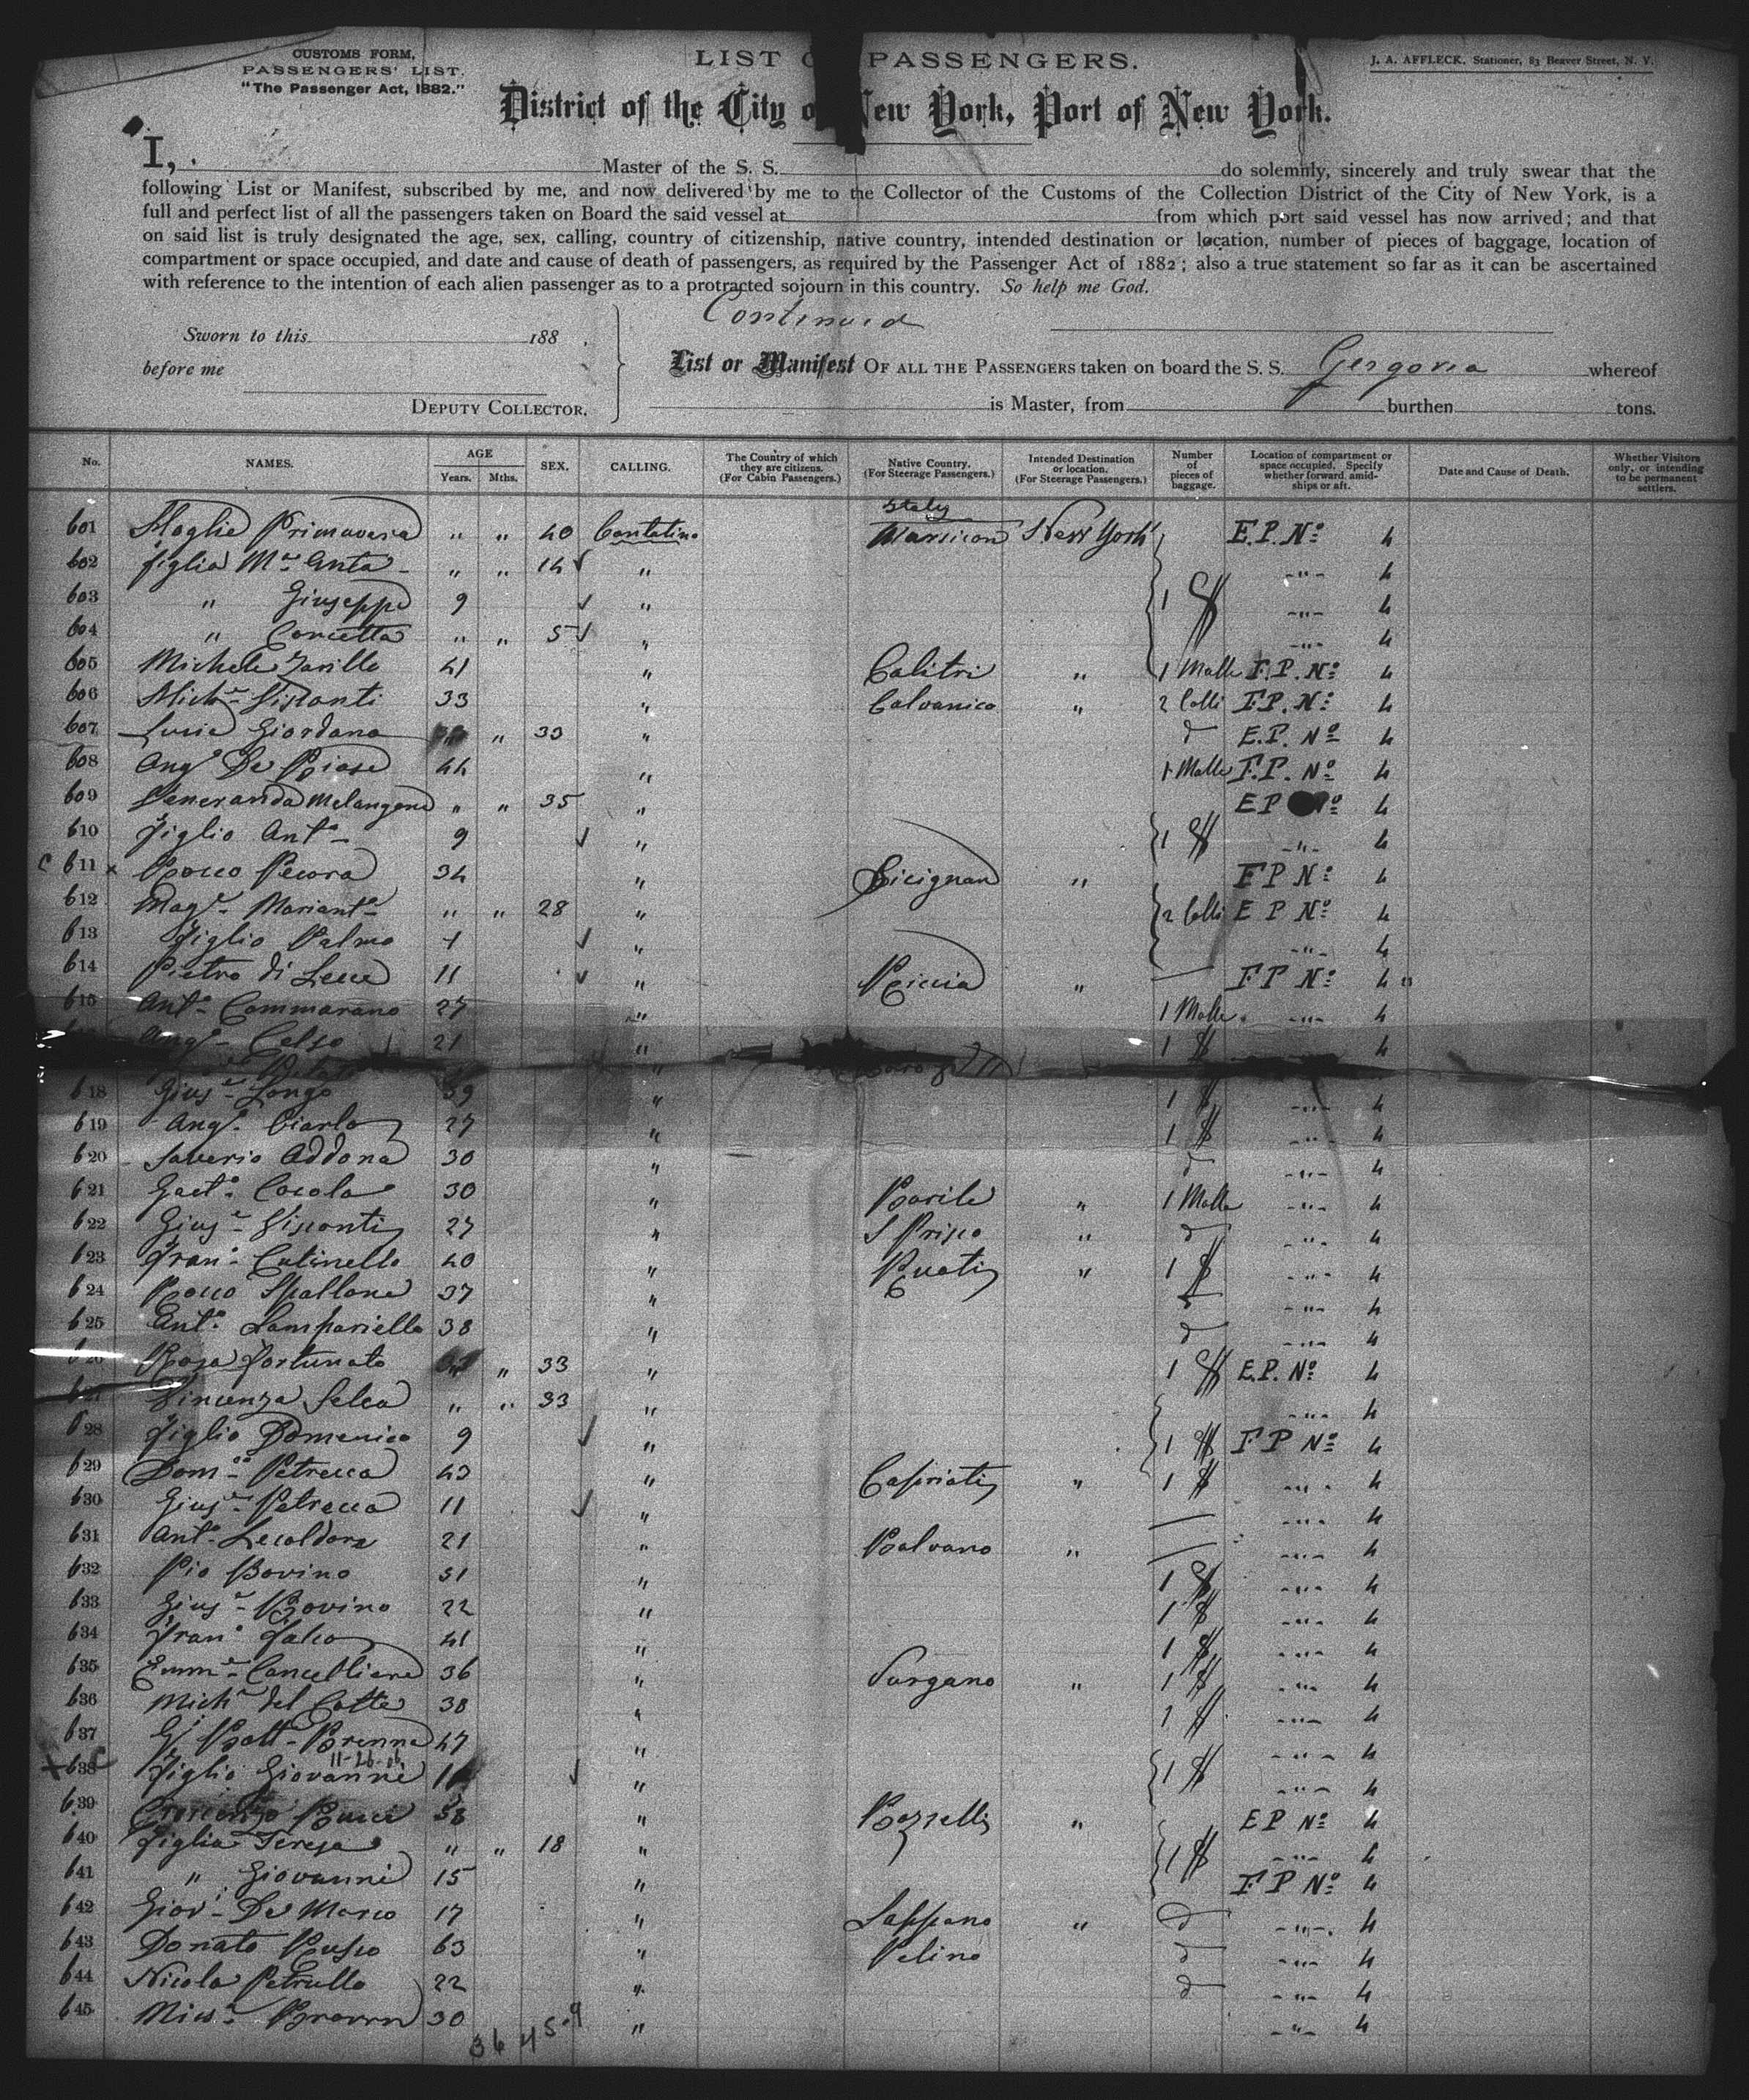 CUSTOMS FORM,
PASSENGERS' LIST.
"The Passenger Act, 1882."
LIST O PASSENGERS.
J. A. AFFLECK, Stationer, 83 Beaver Street, N. Y.
District of the City o New York, Port of New York.
I, Master of the S. S. do solemnly, sincerely and truly swear that the
following List or Manifest, subscribed by me, and now delivered by me to the Collector of the Customs of the Collection District of the City of New York, is a
full and perfect list of all the passengers taken on Board the said vessel at from which port said vessel has now arrived; and that
on said list is truly designated the age, sex, calling, country of citizenship, native country, intended destination or location, number of pieces of baggage, location of
compartment or space occupied, and date and cause of death of passengers, as required by the Passenger Act of 1882; also a true statement so far as it can be ascertained
with reference to the intention of each alien passenger as to a protracted sojourn in this country. So help me God.
Continued
Sworn to this 188 .
before me
DEPUTY COLLECTOR.
List or Manifest OF ALL THE PASSENGERS taken on board the S. S. Gergovia whereof
is Master, from burthen tons.
No. NAMES. AGE Years. Mths. SEX. CALLING. The Country of which they are citizens. (For Cabin Passengers.) Native Country. (For Steerage Passengers.) Intended Destination or location. (For Steerage Passengers.) Number of pieces of baggage. Location of compartment or space occupied. Specify whether forward, amidships or aft. Date and Cause of Death. Whether Visitors only, or intending to be permanent settlers.
Italy
601 Moglie Primavera " " 40 Contatino New York E.P. Nº 4
602 figlia Mª Anta " " 14 " -"- 4
603 " Giuseppe 9 " 1 -"- 4
604 " Concetta " " 5 " -"- 4
605 Michele Zarillo 41 " Calitri " 1 Malle F.P. Nº 4
606 Michˡᵉ Visconti 33 " Calvanico " 2 Colli F.P. Nº 4
607 Lucia Giordano " 33 " d E.P. Nº 4
608 Angº De Biase 44 " 1 Malle F.P. Nº 4
609 Veneranda Melangone " " 35 " E P Nº 4
610 Figlio Antº 9 " 1 -"- 4
611 Rocco Pecora 34 " Sicignan " F P Nº 4
612 Magˡᵉ Mariantª " " 28 " 2 Colli E P Nº 4
613 Figlio Palmo " -"- 4
614 Pietro di Lecce 11 " Riccia " F P Nº 4
615 Antº Commarano 27 " 1 Malle -"- 4
Angº Celso 21 " 1 4
618 Giusᵉ Longo 39 " 1 -"- 4
619 Angº Ciarlo 27 " 1 -"- 4
620 Saverio Addona 30 " d -"- 4
621 Gaetº Cocola 30 " Barile " 1 Malle -"- 4
622 Giusᵉ Visconti 27 " S Prisco " d -"- 4
623 Franº Cutinello 40 " Ruoti " 1 -"- 4
624 Rocco Spallone 37 " -"- 4
625 Antº Lampariello 38 " d -"- 4
626 Rosa Fortunato " 33 " 1 E.P. Nº 4
Vincenza Selca " " 33 " -"- 4
628 Figlio Domenico 9 " 1 F P Nº 4
629 Domᶜᵒ Petrecca 43 " Capriati " 1 -"- 4
630 Giusᵉ Petrecca 11 " -"- 4
631 Antº Lecaldore 21 " Balvano " -"- 4
632 Pio Bovino 31 " 1 -"- 4
633 Giusᵉ Bovino 22 " 1 -"- 4
634 Franº Falco 41 " 1 -"- 4
635 Emmˡᵉ Cancelliere 36 " " 1 -"- 4
636 Michˡᵉ del Cotto 38 " 1 -"- 4
637 Gº Batt Brenna 47 " -"- 4
11-26-06
638 Figlio Giovanni " 1 -"- 4
639 Crescenzo Bucci 38 " " E P Nº 4
640 figlia Teresa " " 18 " 1 -"- 4
641 " Giovanni 15 " F P Nº 4
642 Giovº De Marco 17 " Sassano " d -"- 4
643 Donato Russo 63 " Pelino d -"- 4
644 Nicola Petrullo 22 " d -"- 4
645 30 " -"- 4
36 4 5 9